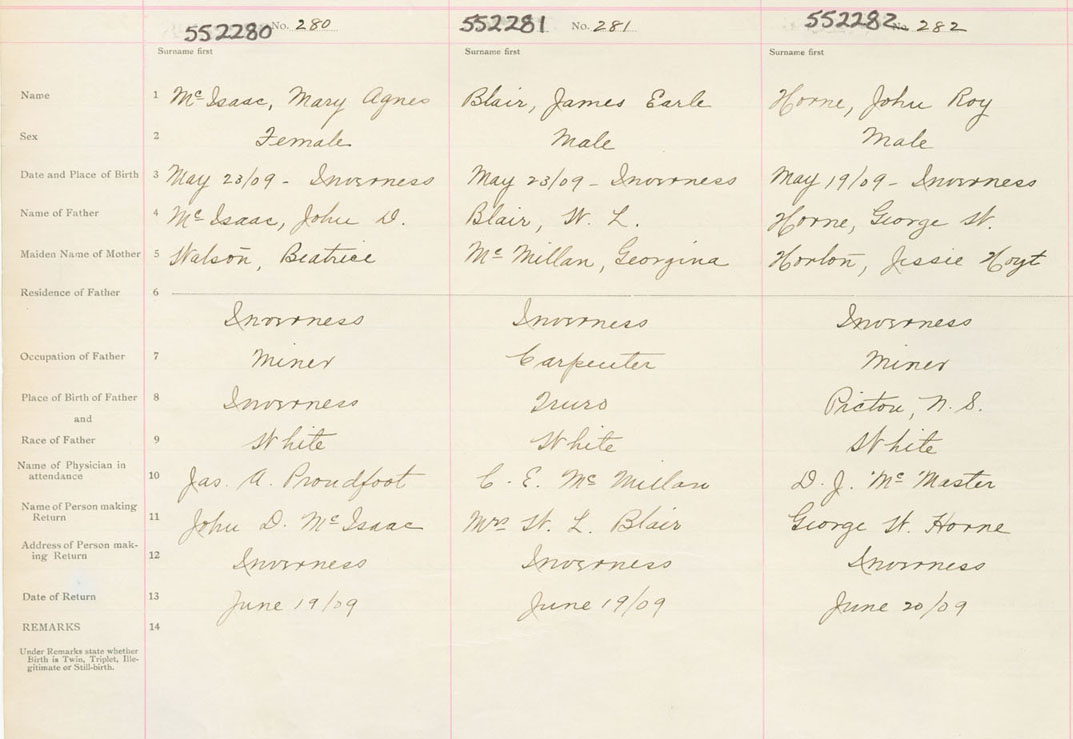 552280 No. 280 552281 No. 281 552282 No. 282
Surname first Surname first Surname first
Name 1 Mc Isaac, Mary Agnes Blair, James Earle Horne, John Roy
Sex 2 Female Male Male
Date and Place of Birth 3 May 23/09 - Inverness May 23/09 - Inverness May 19/09 - Inverness
Name of Father 4 Mc Isaac, John D. Blair, W. L. Horne, George W.
Maiden Name of Mother 5 Watson, Beatrice Mc Millan, Georgina Horton, Jessie Hoyt
Residence of Father 6
Inverness Inverness Inverness
Occupation of Father 7 Miner Carpenter Miner
Place of Birth of Father 8 Inverness Truro Pictou, N. S.
and
Race of Father 9 White White White
Name of Physician in
attendance 10 Jas. A. Proudfoot C. E. Mc Millan D. J. Mc Master
Name of Person making
Return 11 John D. Mc Isaac Mrs W. L. Blair George W. Horne
Address of Person mak-
ing Return 12 Inverness Inverness Inverness
Date of Return 13 June 19/09 June 19/09 June 20/09
REMARKS 14
Under Remarks state whether
Birth is Twin, Triplet, Ille-
gitimate or Still-birth.